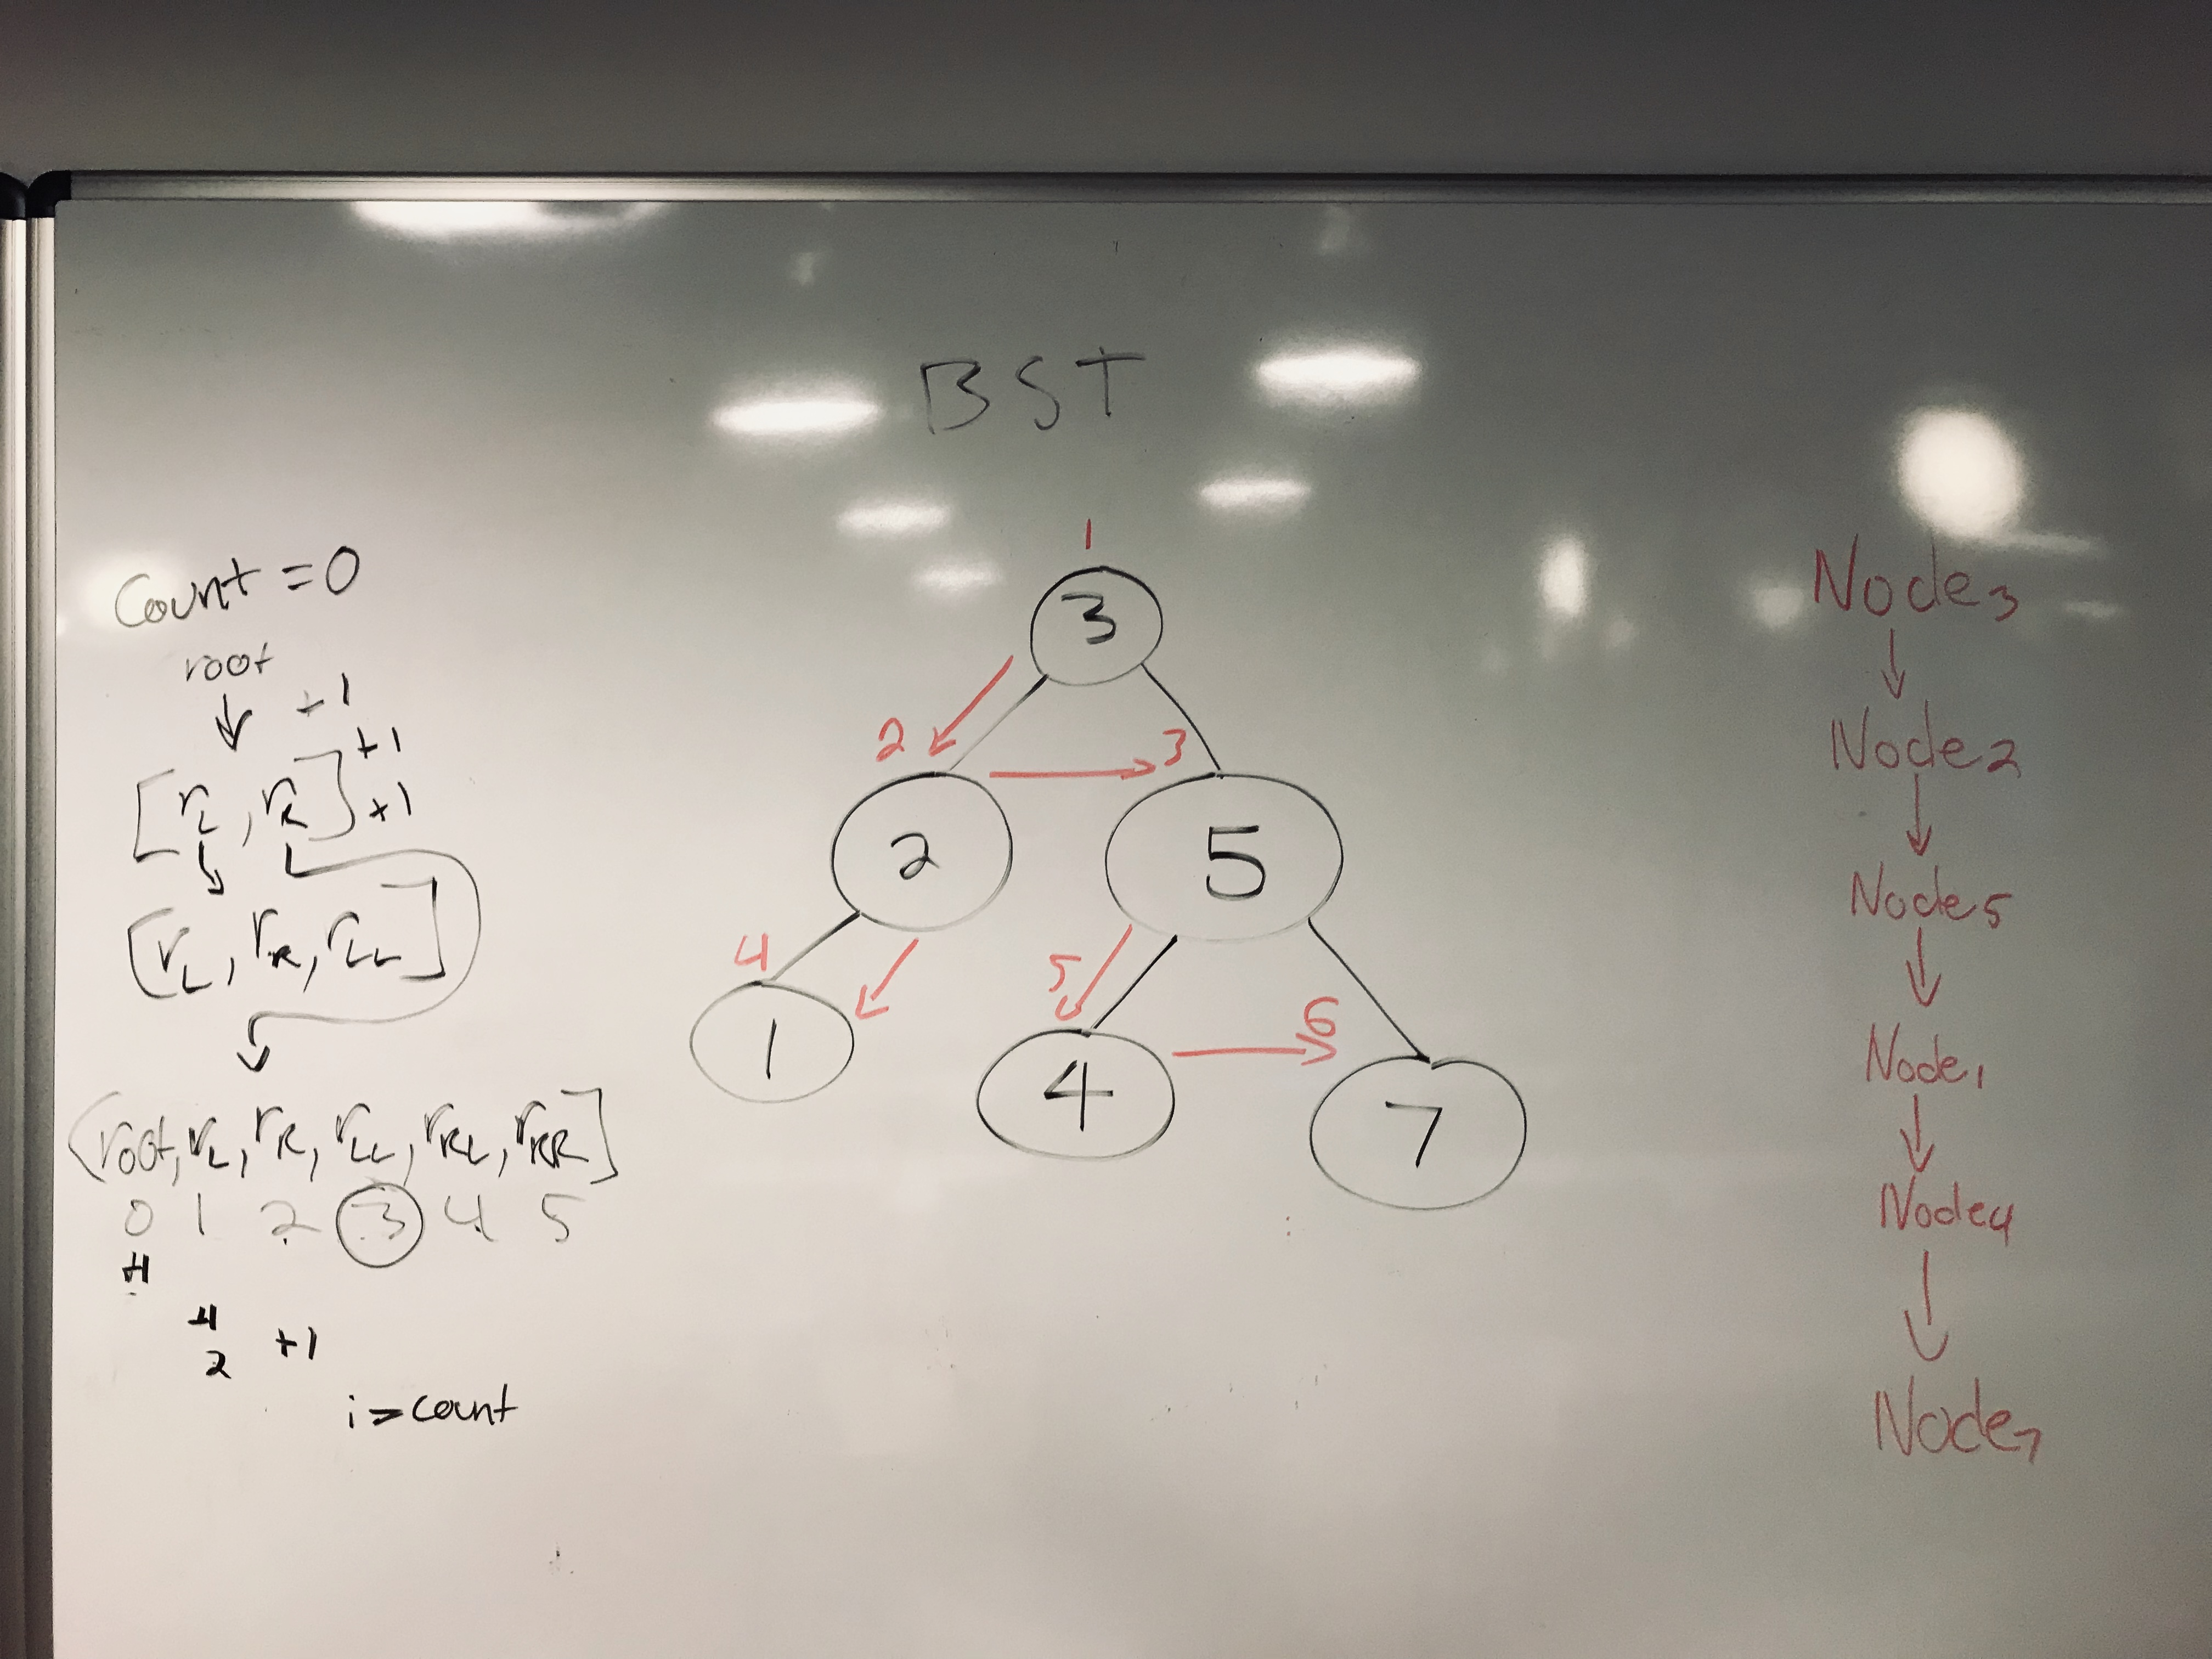 BST
Count = 0
root
+1
[rL, rR] +1
+1
[rL, rR, rLL]
[root, rL, rR, rLL, rRL, rRR]
0 1 2 3 4 5
+1
2 +1
i > count
1
3
2 3
2 5
4 5 6
1 4 7
Node3
Node2
Node5
Node1
Node4
Node7